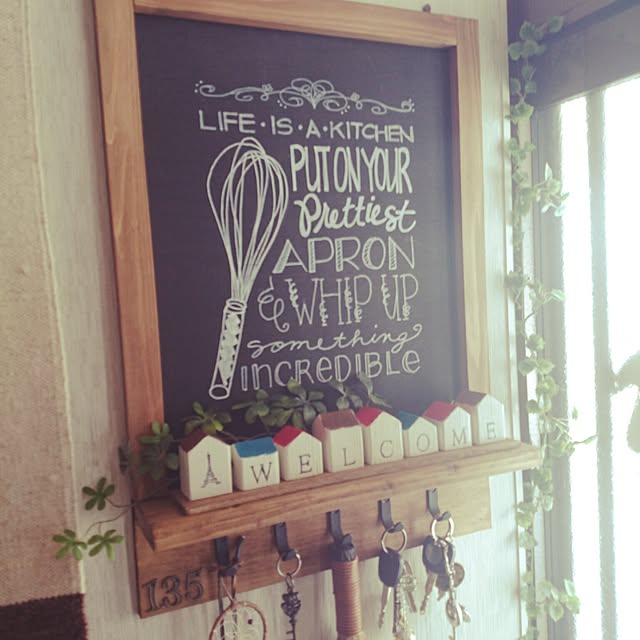 LIFE·IS·A·KITCHEN
PUT ON YOUR
Prettiest
APRON
& WHIP UP
something
INCREDIBLE
WELCOME
135